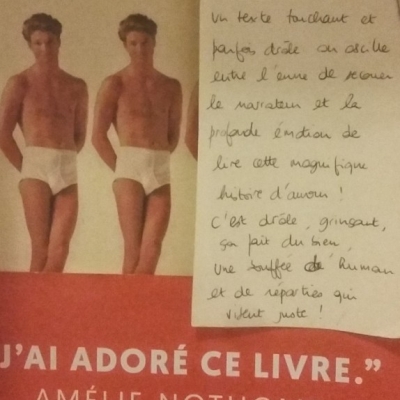 un texte touchant et
parfois drôle on oscille
entre l'envie de secouer
le narrateur et la
profonde émotion de
lire cette magnifique
histoire d'amour !
C'est drôle, grinçant,
ça fait du bien,
une bouffée d'humani
et de réparties qui
visent juste !
J'AI ADORÉ CE LIVRE."
AMÉLIE NOTHOM